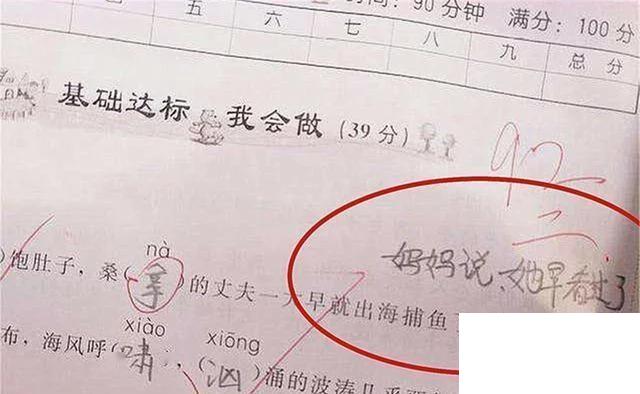 时间：90 分钟 满分：100 分
五 六 七 八 九 总 分
基础达标 我会做（39 分）
92
妈妈说，她早看过了
nà
饱肚子，桑（拿）的丈夫一大早就出海捕鱼
xiào xiōng
布，海风呼（啸），（汹）涌的波涛几乎